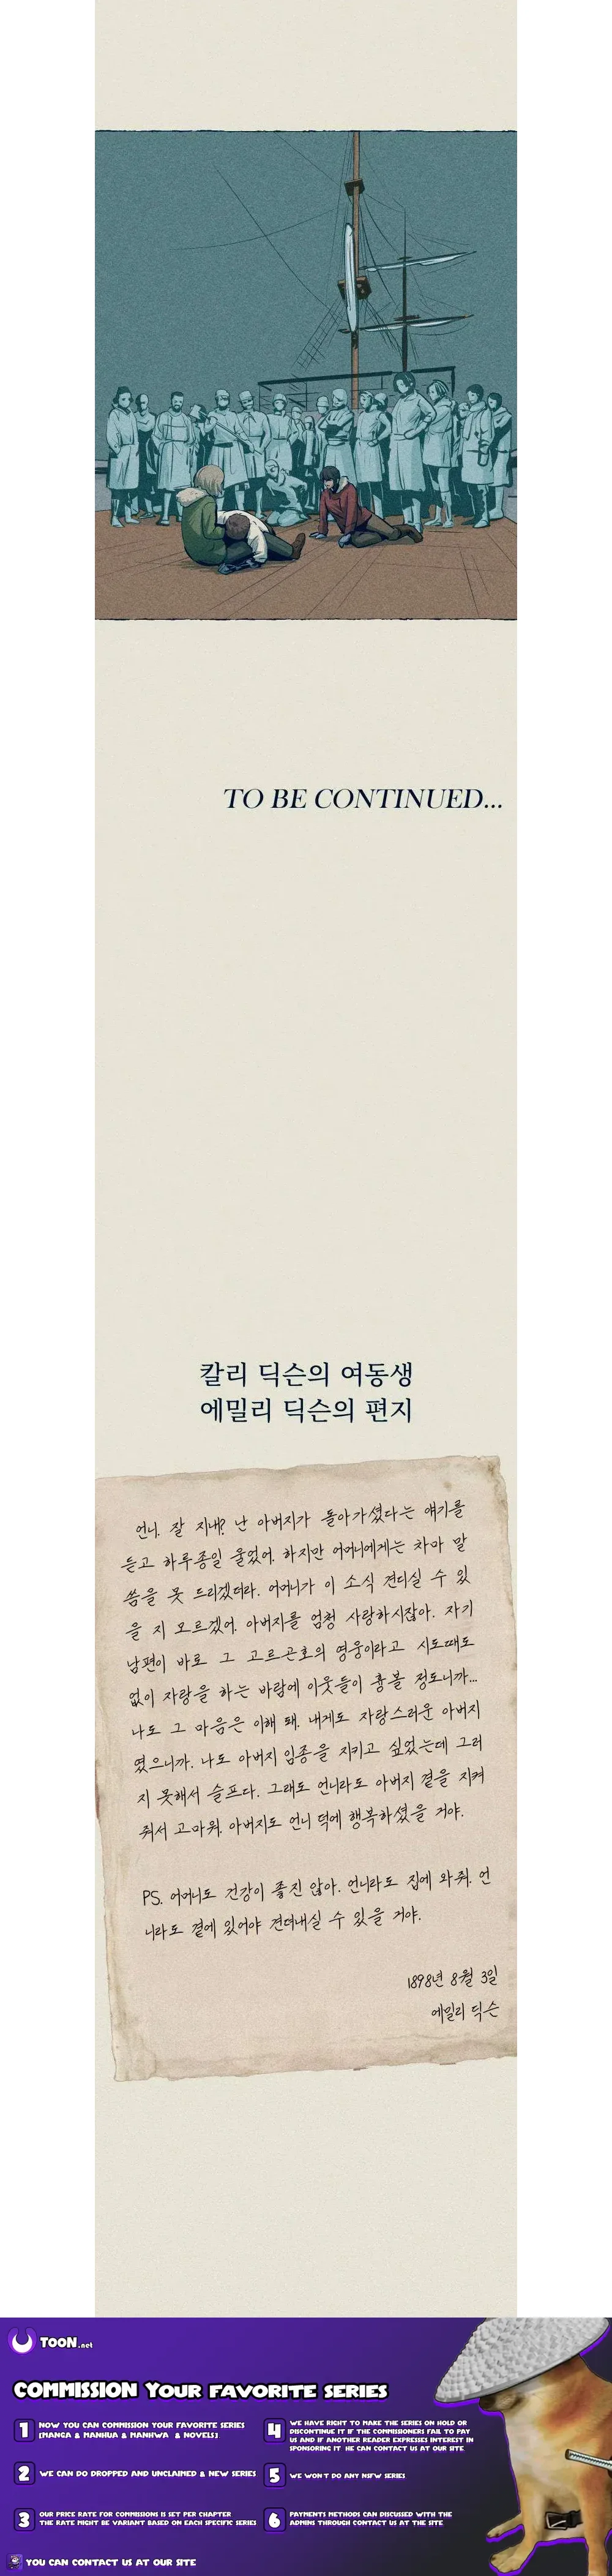 TO BE CONTINUED...
칼리 딕슨의 여동생
에밀리 딕슨의 편지
언니. 잘 지내? 난 아버지가 돌아가셨다는 얘기를
듣고 하루종일 울었어. 하지만 어머니에게는 차마 말
씀을 못 드리겠더라. 어머니가 이 소식 견디실 수 있
을 지 모르겠어. 아버지를 엄청 사랑하시잖아. 자기
남편이 바로 그 고르곤호의 영웅이라고 시도때도
없이 자랑을 하는 바람에 이웃들이 흉볼 정도니까...
나도 그 마음은 이해 돼. 내게도 자랑스러운 아버지
였으니까. 나도 아버지 임종을 지키고 싶었는데 그러
지 못해서 슬프다. 그래도 언니라도 아버지 곁을 지켜
줘서 고마워. 아버지도 언니 덕에 행복하셨을 거야.
PS. 어머니도 건강이 좋진 않아. 언니라도 집에 와줘. 언
니라도 곁에 있어야 견뎌내실 수 있을 거야.
1898년 8월 3일
에밀리 딕슨
TOON.net
COMMISSION YOUR FAVORITE SERIES
1 NOW YOU CAN COMMISSION YOUR FAVORITE SERIES
[MANGA & MANHUA & MANHWA & NOVELS]
2 WE CAN DO DROPPED AND UNCLAIMED & NEW SERIES
3 OUR PRICE RATE FOR COMMISSIONS IS SET PER CHAPTER
THE RATE MIGHT BE VARIANT BASED ON EACH SPECIFIC SERIES
4 WE HAVE RIGHT TO MAKE THE SERIES ON HOLD OR
DISCONTINUE IT IF THE COMMISSIONERS FAIL TO PAY
US AND IF ANOTHER READER EXPRESSES INTEREST IN
SPONSORING IT HE CAN CONTACT US AT OUR SITE
5 WE WON T DO ANY NSFW SERIES
6 PAYMENTS METHODS CAN DISCUSSED WITH THE
ADMINS THROUGH CONTACT US AT THE SITE
YOU CAN CONTACT US AT OUR SITE